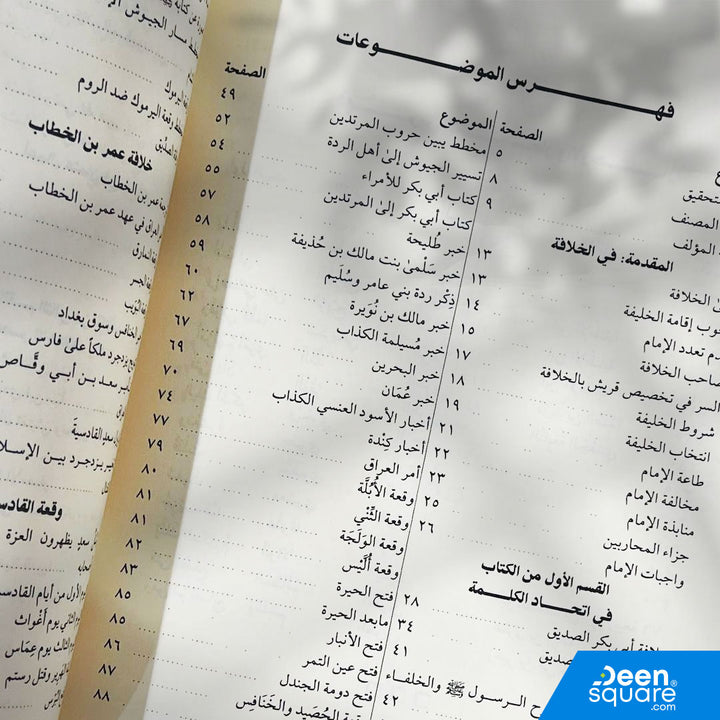 فهرس الموضوعات
الصفحة
التحقيق
المصنف
المؤلف
المقدمة: في الخلافة ٥
الخلافة ٨
إقامة الخليفة ٩
تعدد الإمام
صاحب الخلافة ١٣
السر في تخصيص قريش بالخلافة ١٣
شروط الخليفة ١٤
انتخاب الخليفة ١٥
طاعة الإمام ١٧
مخالفة الإمام ١٨
منابذة الإمام ١٩
جزاء المحاربين ٢١
واجبات الإمام ٢٢
٢٣
القسم الأول من الكتاب ٢٥
في اتحاد الكلمة ٢٦
أبي بكر الصديق ٢٨
الصديق ٣٤
٤١
الرسول ﷺ والخلفاء ٤٢
الموضوع
الصفحة
مخطط يبين حروب المرتدين ٤٩
تسيير الجيوش إلى أهل الردة ٥٢
كتاب أبي بكر للأمراء ٥٤
كتاب أبي بكر إلى المرتدين ٥٥
خبر طُليحة ٥٧
خبر سَلْمى بنت مالك بن حُذيفة ٥٨
ذِكْر ردة بني عامر وسُلَيم ٥٩
خبر مالك بن نُوَيرة ٦٠
خبر مُسيلمة الكذاب ٦٢
خبر البحرين ٦٧
خبر عُمَان ٦٩
أخبار الأسود العنسي الكذاب ٧٠
أخبار كِندة ٧٤
أمر العراق ٧٧
وقعة الأُبُلَّة ٧٩
وقعة الثِّنْي ٨٠
وقعة الوَلَجَة ٨١
وقعة أُلَّيْس ٨١
فتح الحيرة ٨٢
مابعد الحيرة ٨٣
فتح الأنبار ٨٥
فتح عين التمر ٨٥
فتح دومة الجندل ٨٦
الحُصَيد والخَنَافِس ٨٧
٨٨
سار الجيوش
اليرموك
وقعة اليرموك ضد الروم
خلافة عمر بن الخطاب
عمر بن الخطاب
العراق في عهد عمر بن الخطاب
الخنافس وسوق بغداد
يزدجرد ملكاً على فارس
سعد بن أبي وقَّاص
سعد القادسية
يزدجرد بين الإسلام
وقعة القادسية
يظهرون العزة
الأول من أيام القادسية
الثاني يوم أَغْواث
الثالث يوم عِمَاس
وقتل رستم
Deen
square®
.com